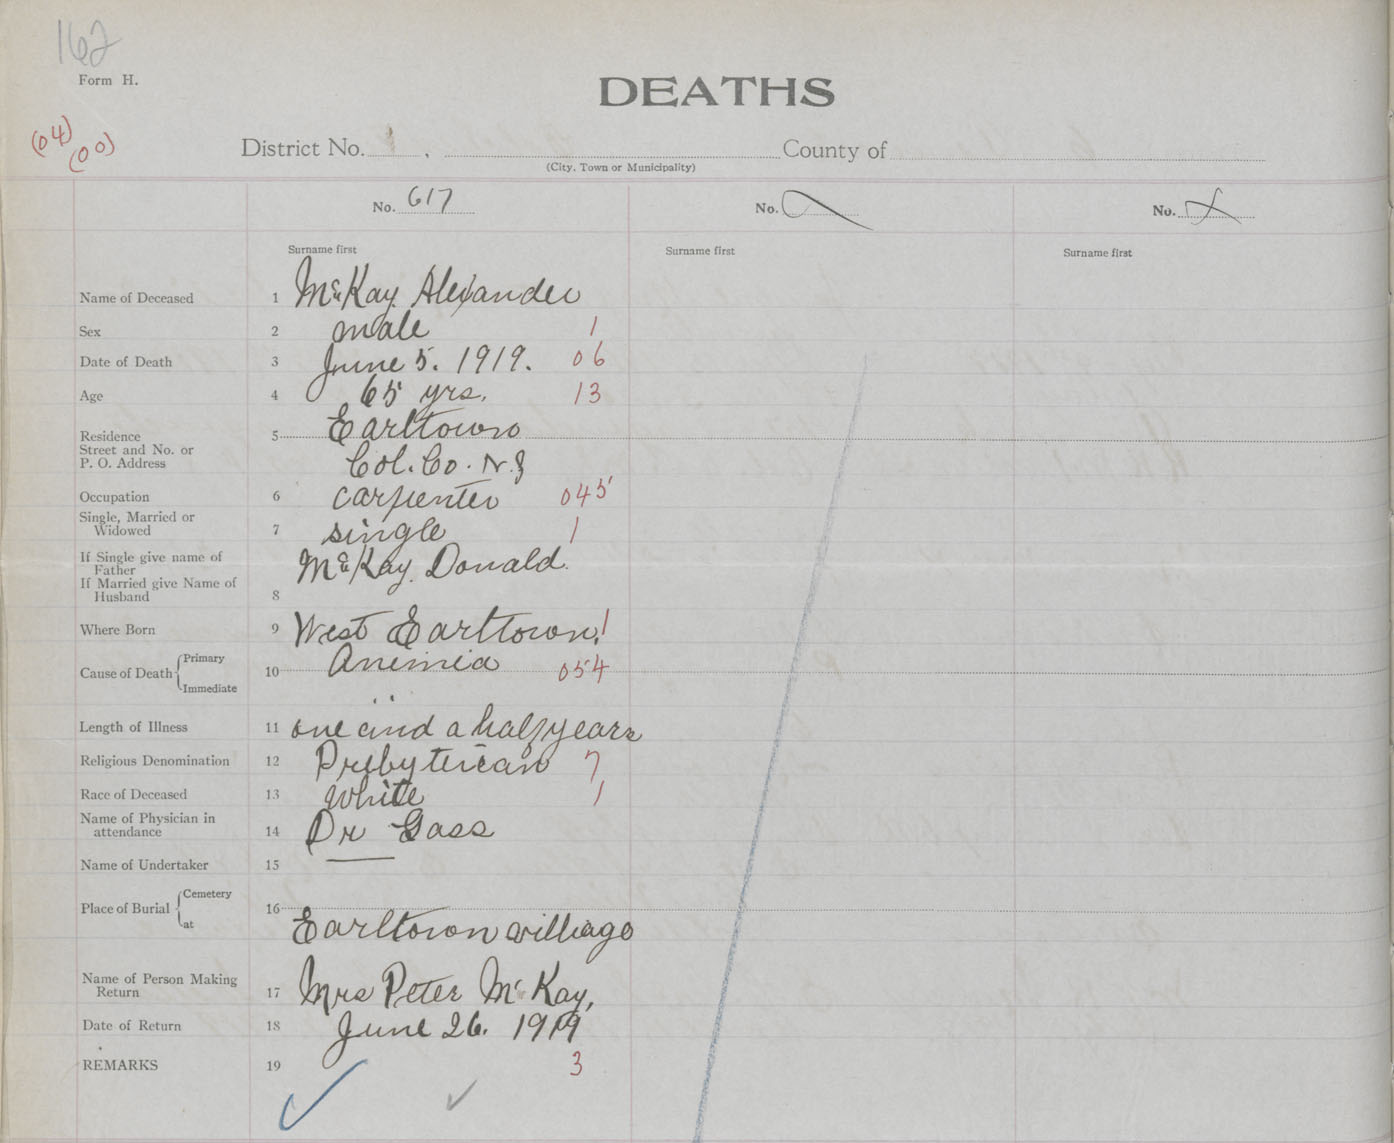 162
Form H.
DEATHS
(04)
(00)
District No. , County of
(City, Town or Municipality)
No. 617 No. No.
Surname first Surname first Surname first
Name of Deceased 1 McKay Alexander
Sex 2 male 1
Date of Death 3 June 5. 1919. 06
Age 4 65 yrs. 13
Residence 5 Earltown
Street and No. or
P. O. Address Col. Co. N.S
Occupation 6 carpenter 045
Single, Married or
Widowed 7 single 1
If Single give name of
Father McKay Donald.
If Married give Name of
Husband 8
Where Born 9 West Earltown. 1
Cause of Death Primary Anemia
10 054
Immediate
Length of Illness 11 one and a half years
Religious Denomination 12 Presbyterian 7
Race of Deceased 13 White 1
Name of Physician in
attendance 14 Dr Gass
Name of Undertaker 15 —
Place of Burial Cemetery 16
at Earltown village
Name of Person Making
Return 17 Mrs Peter McKay,
Date of Return 18 June 26. 1919
REMARKS 19 3